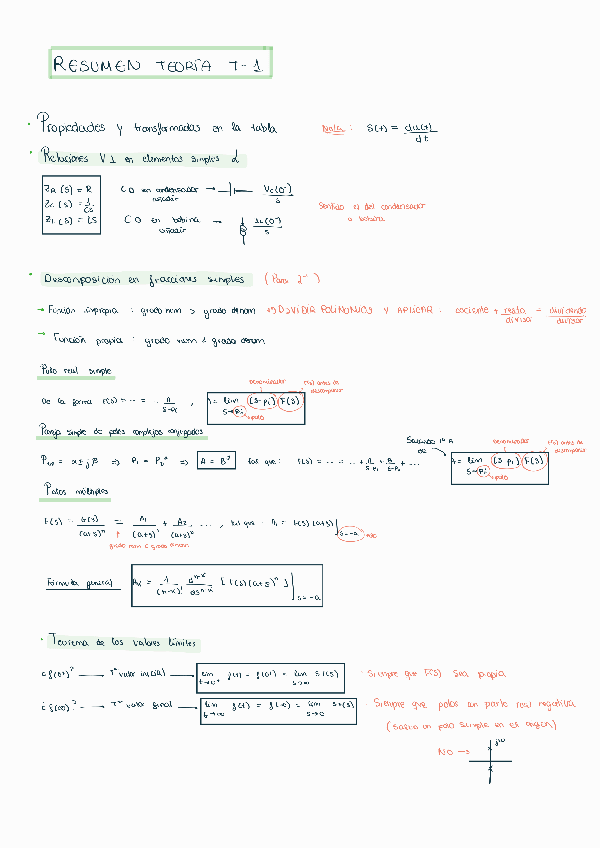 RESUMEN TEORÍA T-1
· Propiedades y transformadas en la tabla
Nota: δ(t) = du(t)/dt
· Relaciones V I en elementos simples L
Z_R (s) = R
Z_C (s) = 1/Cs
Z_L (s) = LS
C O en condensador añadir → V_C(0⁻)/s
C O en bobina añadir → i_L(0⁻)/s
Sentido el del condensador
o bobina
· Descomposicion en fracciones simples (Para L⁻¹)
→ Función impropia : grado num > grado denom → DIVIDIR POLINOMIOS Y APLICAR : cociente + resto/divisor = dividendo/divisor
→ Función propia : grado num < grado denom
Polo real simple
denominador
F(s) antes de descomponer
De la forma F(s) = ... = ... A/(s-pi) , A = lim s→pi (s-pi) F(s)
polo
Pareja simple de polos complejos conjugados
P₁,₂ = α ± jβ ⇒ P₁ = P₂* ⇒ A = B* tal que : F(s) = ... = ... + A/(s-p₁) + B/(s-p₂) + ...
Sacando 1º A de
denominador
F(s) antes de descomponer
A = lim s→pi (s-pi) F(s)
polo
Polos múltiples
F(s) = G(s)/(a+s)ⁿ = A₁/(a+s)¹ + A₂/(a+s)² , ... , tal que : Aₙ = F(s) (a+s)ⁿ |s=-a
polo
grado num < grado denom
Fórmula general A_k = 1/(n-k)! dⁿ⁻ᵏ/dsⁿ⁻ᵏ [F(s)(a+s)ⁿ] |s=-a
· Teorema de los valores límites
¿f(0⁺)? → Tª valor inicial → lim t→0⁺ f(t) = f(0⁺) = lim s→∞ s F(s)
· Siempre que F(s) sea propia
¿f(∞)? → Tª valor final → lim t→∞ f(t) = f(∞) = lim s→0 s F(s)
· Siempre que polos con parte real negativa
(salvo un polo simple en el origen)
NO →
jω